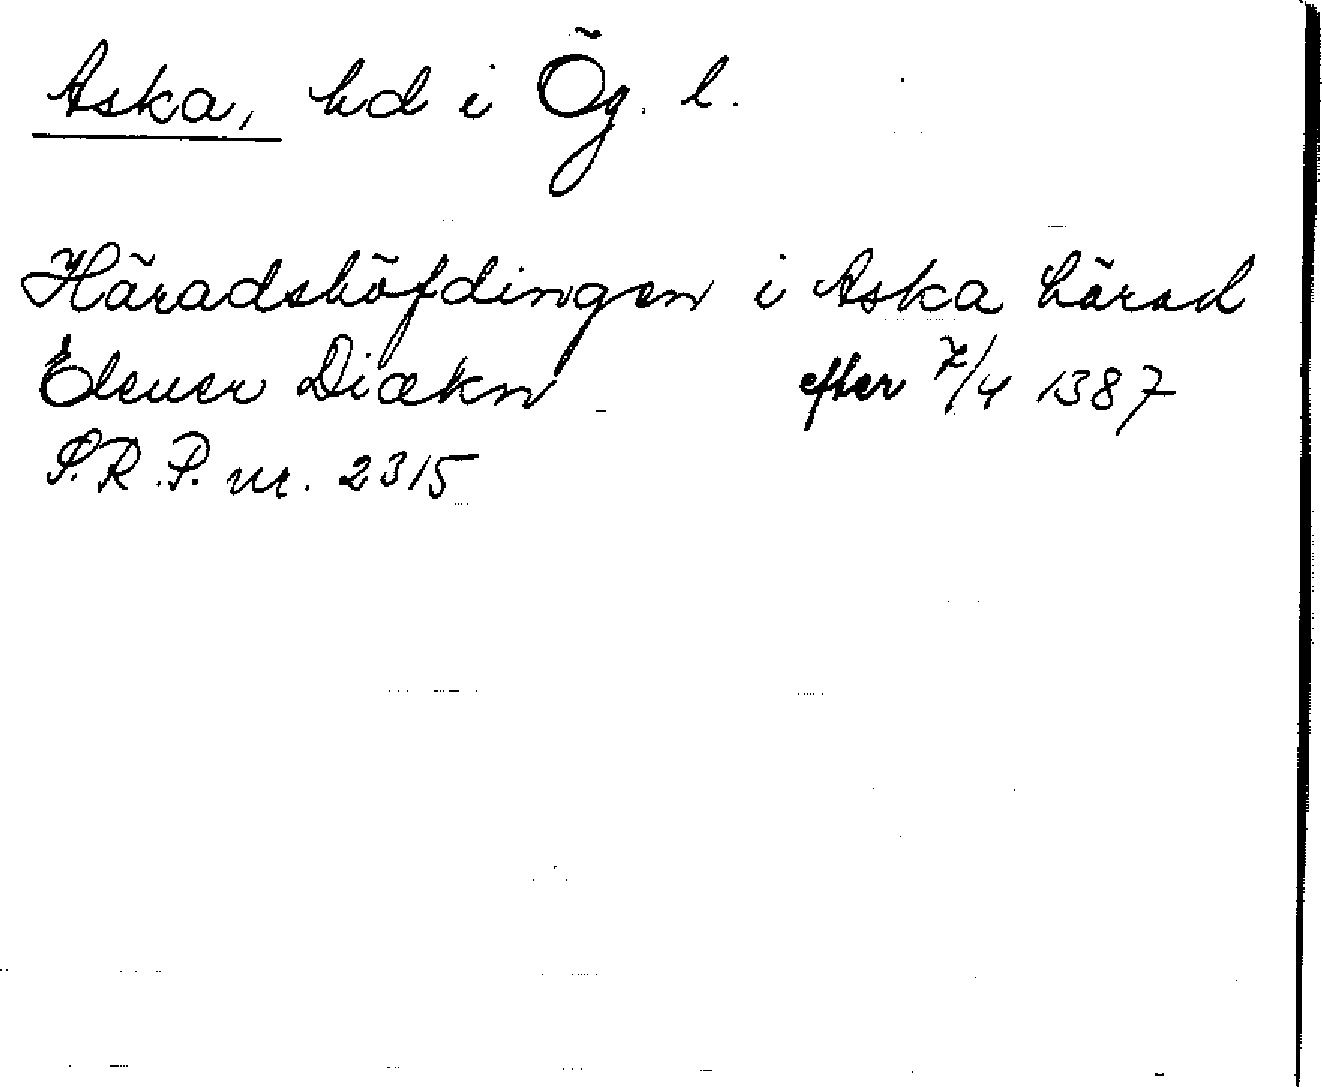 Aska, hd i Ög. l.
Häradshöfdingen i Aska härad
Elever Diækn efter 7/4 1387
S.R.P. nr. 2315